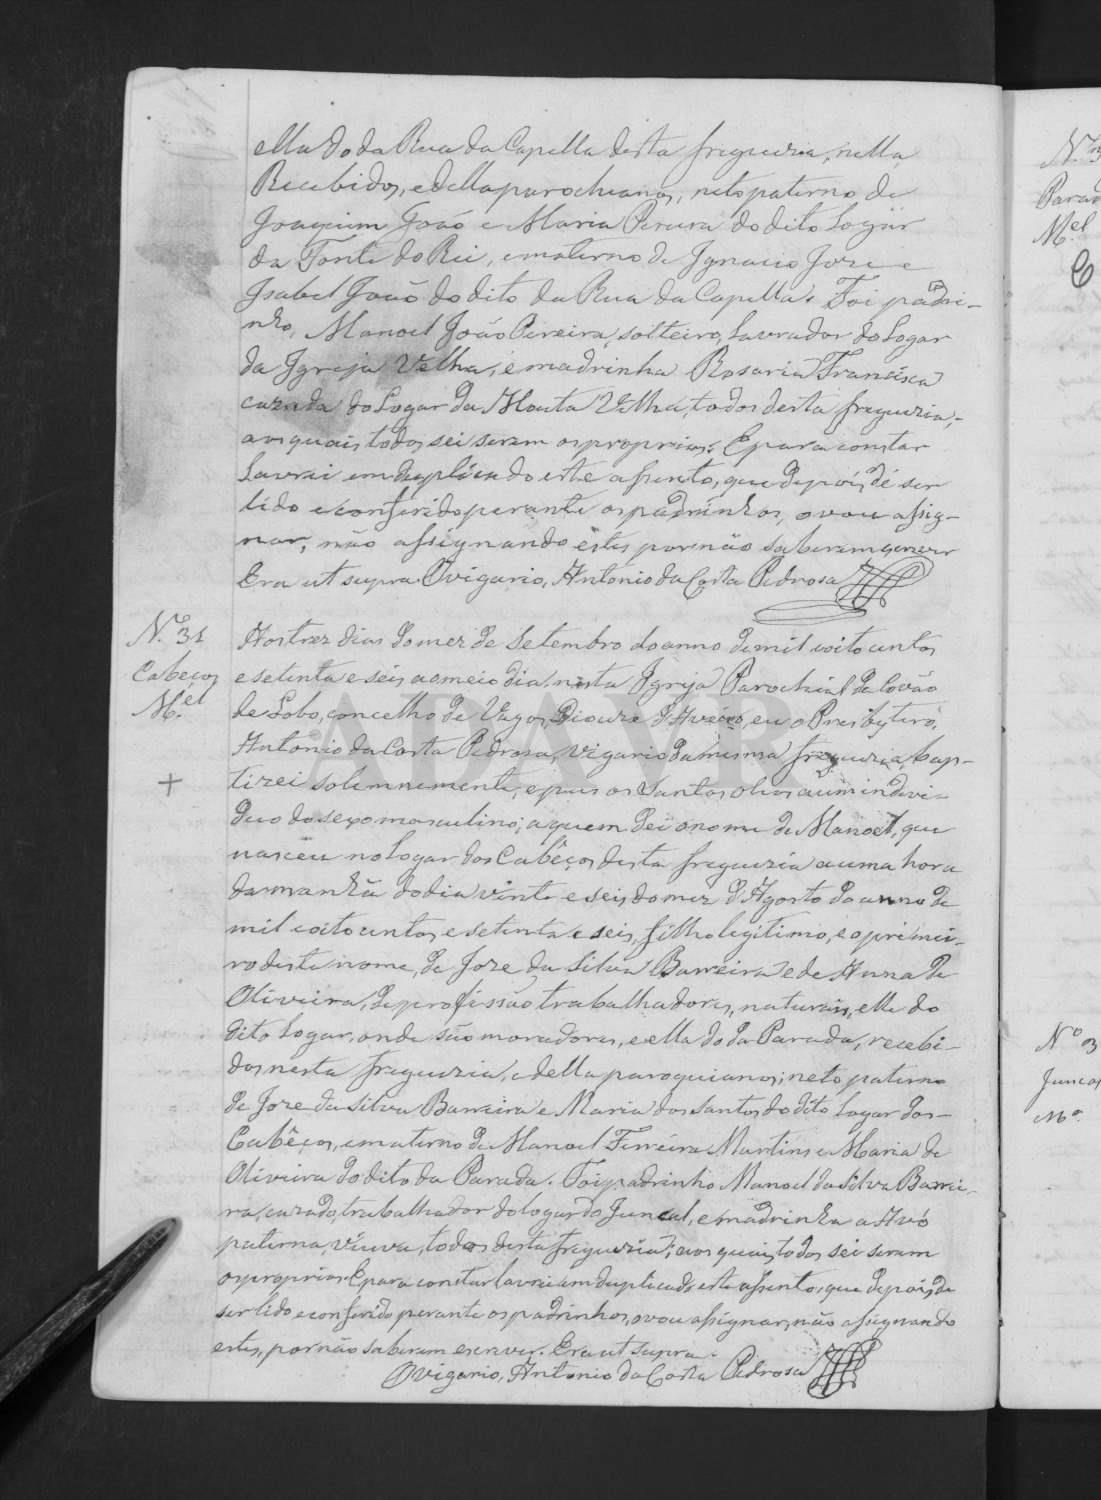 ella do da Rua da Capella desta freguezia, nella
Recebidos, e della parochianos, neto paterno de
Joaquim João e Maria Pereira do dito Logar
da Fonte do Rei, e materno de Ignacio Joze e
Isabel João do dito da Rua da Capella. Foi padri-
nho, Manoel João Pereira, solteiro, Lavrador do Logar
da Igreja Velha, e madrinha Rosaria Francisca
cazada do Logar da Mouta Velha, todos desta freguezia,
aos quais todos sei serem os proprios. E para constar
Lavrei em duplicado este assento, que depois de ser
lido e conferido perante os padrinhos, o vou assig-
nar, não assignando estes por não saberem escrever
Era ut supra. O vigario, Antonio da Costa Pedrosa
Nº 31
Cabeços
M.el
+
Aos trez dias do mez de Setembro do anno de mil oito centos
e setenta e seis ao meio dia, nesta Igreja Parochial de Covão
de Lobo, concelho de Vagos, Dioceze d'Aveiro, eu o Presbytero,
Antonio da Costa Pedrosa, Vigario da mesma freguezia, bap-
tizei solemnemente, e pus os Santos Oleos a um indivi-
duo do sexo masculino; a quem dei o nome de Manoel, que
nasceu no Logar dos Cabêços desta freguezia a uma hora
da manhã do dia vinte e seis do mez d'Agosto do anno de
mil e oito centos, e setenta e seis, filho legitimo, e o primei-
ro deste nome, de Joze da Silva Barreira e de Anna de
Oliveira, de profissão trabalhadores, naturais, elle do
dito Logar, onde são moradores, e ella do da Parada, recebi-
dos nesta freguezia, e della paroquianos; neto paterno
de Joze da Silva Barreira e Maria dos Santos do dito Logar dos
Cabêços, e materno de Manoel Ferreira Martins e Maria de
Oliveira do dito da Parada. Foi padrinho Manoel da Silva Barrei-
ra, cazado, trabalhador do logar do Juncal, e madrinha a Avó
paterna, viuva, todos desta freguezia; aos quais todos sei serem
os proprios. E para constar lavrei em duplicado este assento, que depois de
ser lido e conferido perante os padrinhos, o vou assignar, não assignando
estes, por não saberem escrever. Era ut supra.
O vigario, Antonio da Costa Pedrosa
Nº 3
Parad
M.el
Nº 3
Juncal
Mª
ADAVR